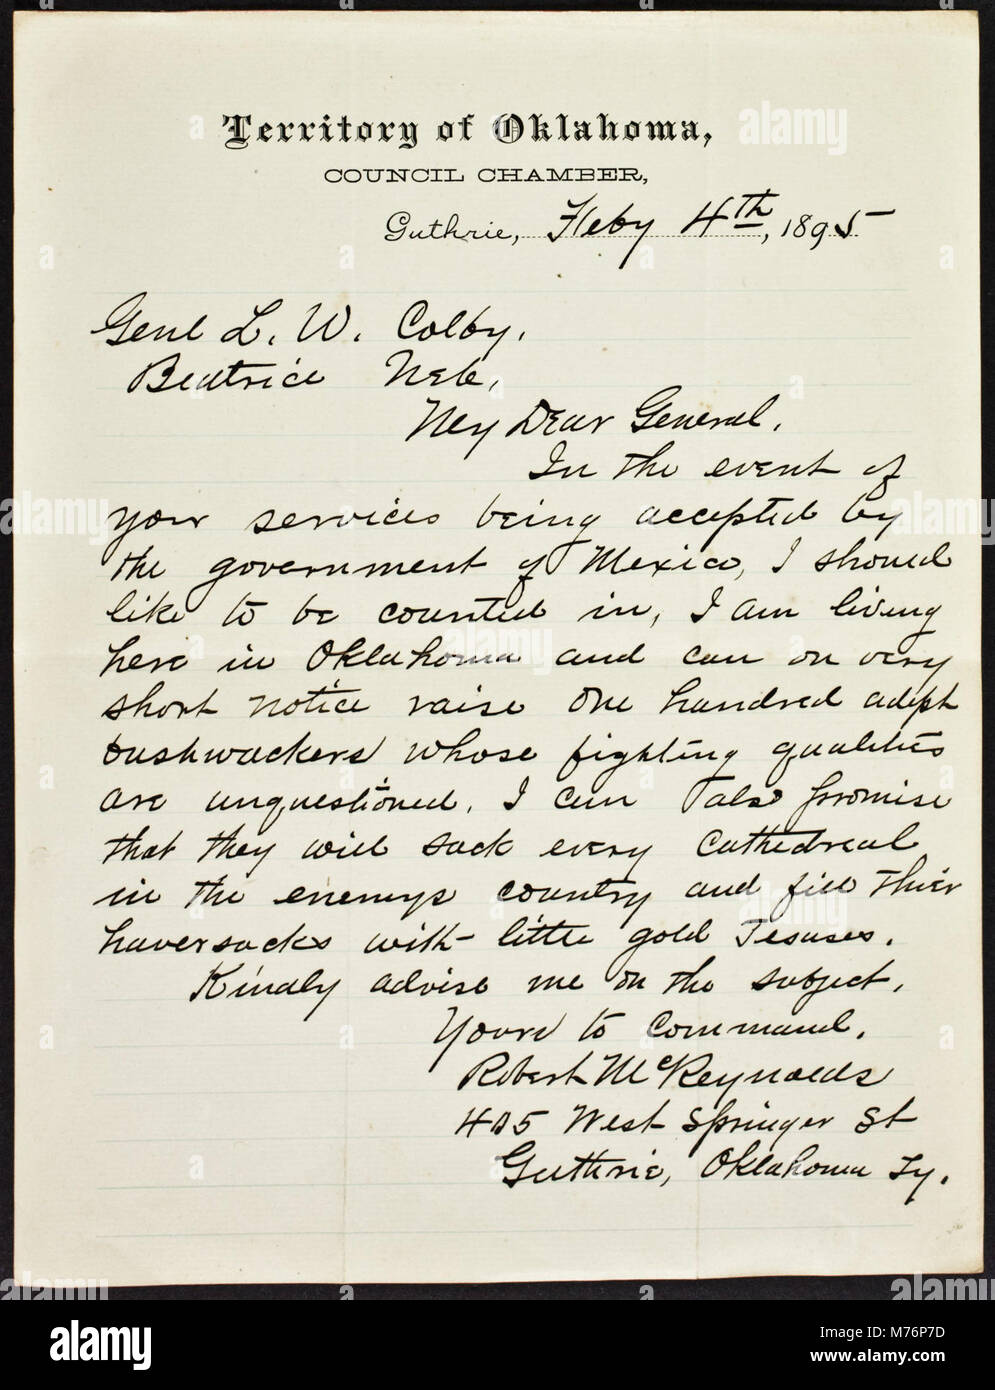 Territory of Oklahoma,
COUNCIL CHAMBER,
Guthrie, Feby 4th, 1895
Genl L. W. Colby,
Beatrice Neb,
My Dear General.
In the event of
your services being accepted by
the government of Mexico, I should
like to be counted in, I am living
here in Oklahoma and can on very
short notice raise one hundred adept
bushwackers whose fighting qualities
are unquestioned. I can also promise
that they will sack every Cathedreal
in the enemys country and fill thier
haversacks with little gold Jesuses.
Kindly advise me on the subject,
Yours to command.
Robert McReynolds
405 West Springer St
Guthrie, Oklahoma Ty.
alamy
M76P7D
Image ID: M76P7D
www.alamy.com